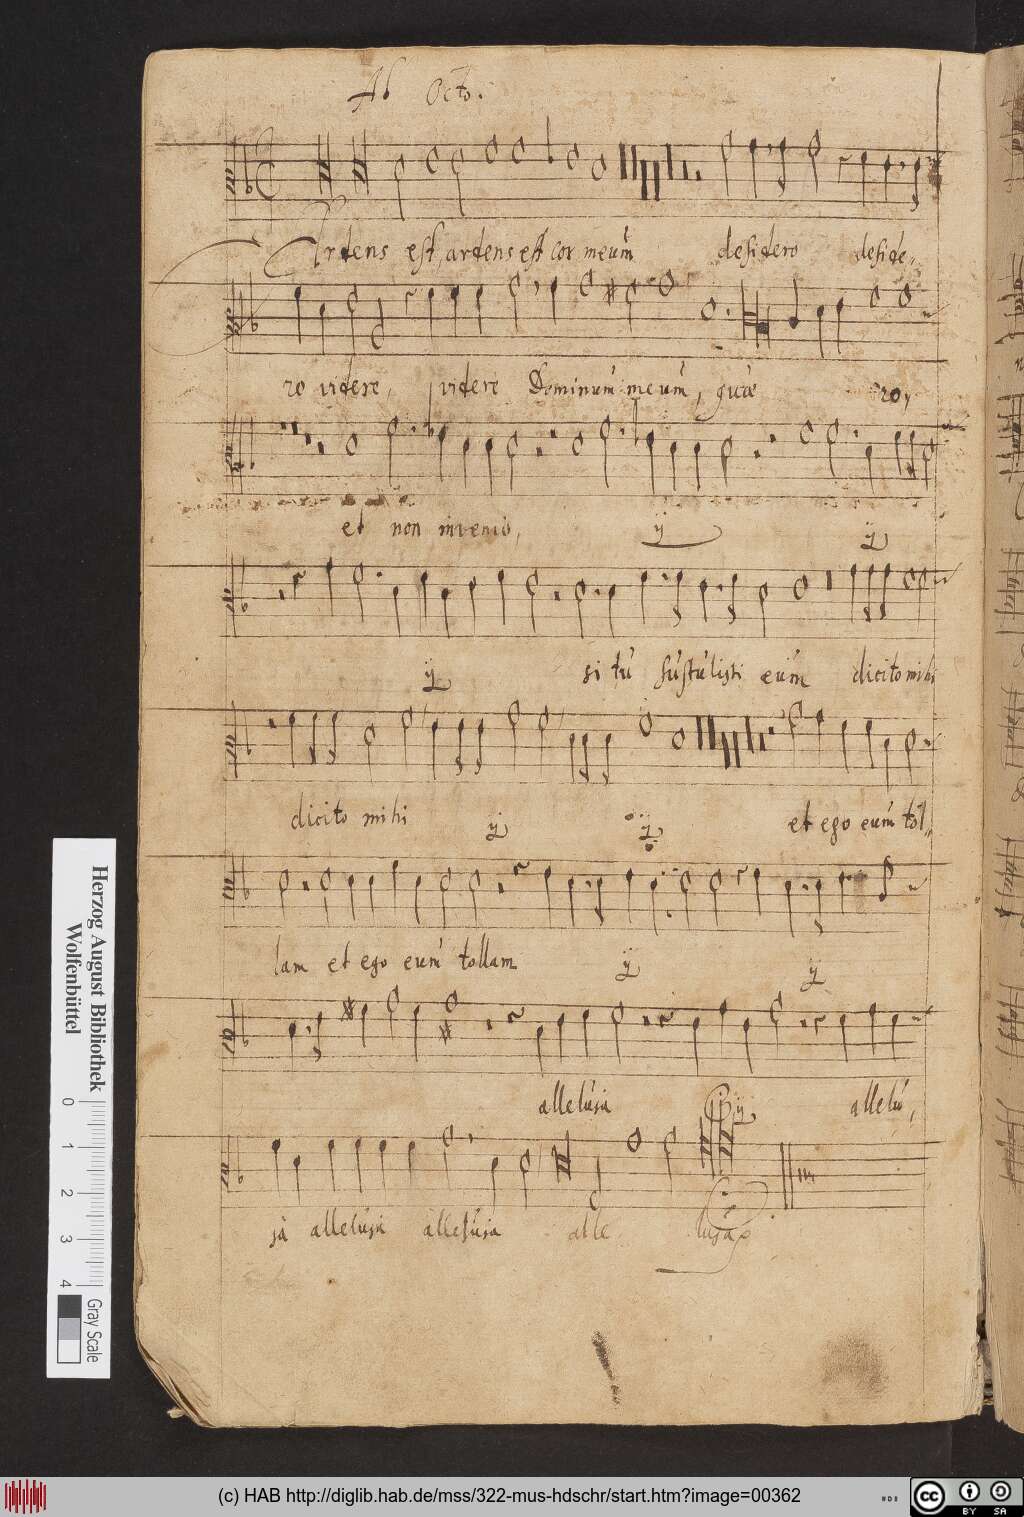 Ab Octo.
Ardens est, ardens est cor meum desidero deside,,
ro videre, videre Dominum meum, quæ ro,
et non invenio, ij ij
ij si tu sustulisti eum dicito mihi
dicito mihi ij ij et ego eum tol,,
lam et ego eum tollam ij ij
alleluia ij allelu,
ja alleluja alleluja alle luja
Herzog August Bibliothek
Wolfenbüttel
0 1 2 3 4
Gray Scale
(c) HAB http://diglib.hab.de/mss/322-mus-hdschr/start.htm?image=00362
cc BY SA